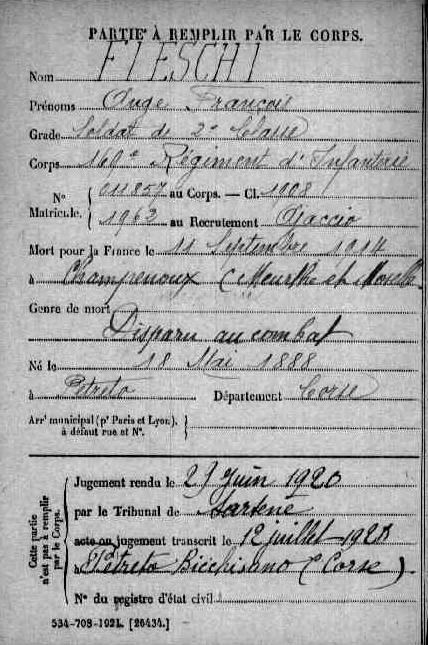 PARTIE À REMPLIR PAR LE CORPS.
Nom FIESCHI
Prénoms Ange François
Grade Soldat de 2e Classe
Corps 160e Régiment d'Infanterie
N° 011857 au Corps. — Cl. 1908
Matricule. 1962 au Recrutement Ajaccio
Mort pour la France le 11 Septembre 1914
à Champenoux (Meurthe et Moselle
Genre de mort
Disparu au combat
Né le 18 Mai 1888
à Petreto Département Corse
Arrt municipal (pr Paris et Lyon),
à défaut rue et N°.
Cette partie
n'est pas à remplir
par le Corps.
Jugement rendu le 29 Juin 1920
par le Tribunal de Sartène
acte ou jugement transcrit le 12 juillet 1920
à Petreto Bicchisano (Corse)
N° du registre d'état civil
534-708-1921. [26434.]